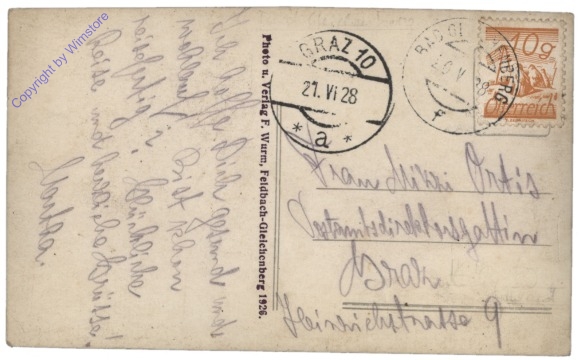 Ich hoffe Dich gesund und
wohlauf? Bist schon
reisefertig? Glückliche
Reise und herzliche Grüsse!
Martha.
Photo u. Verlag F. Wurm, Feldbach-Gleichenberg 1926.
GRAZ 10
21. VI 28
* a *
BAD GL ENBERG
V 28
10g
Frau Mitzi
Postamtsdirektorsgattin
Graz
Heinrichstrasse 9
Copyright by Wimstore